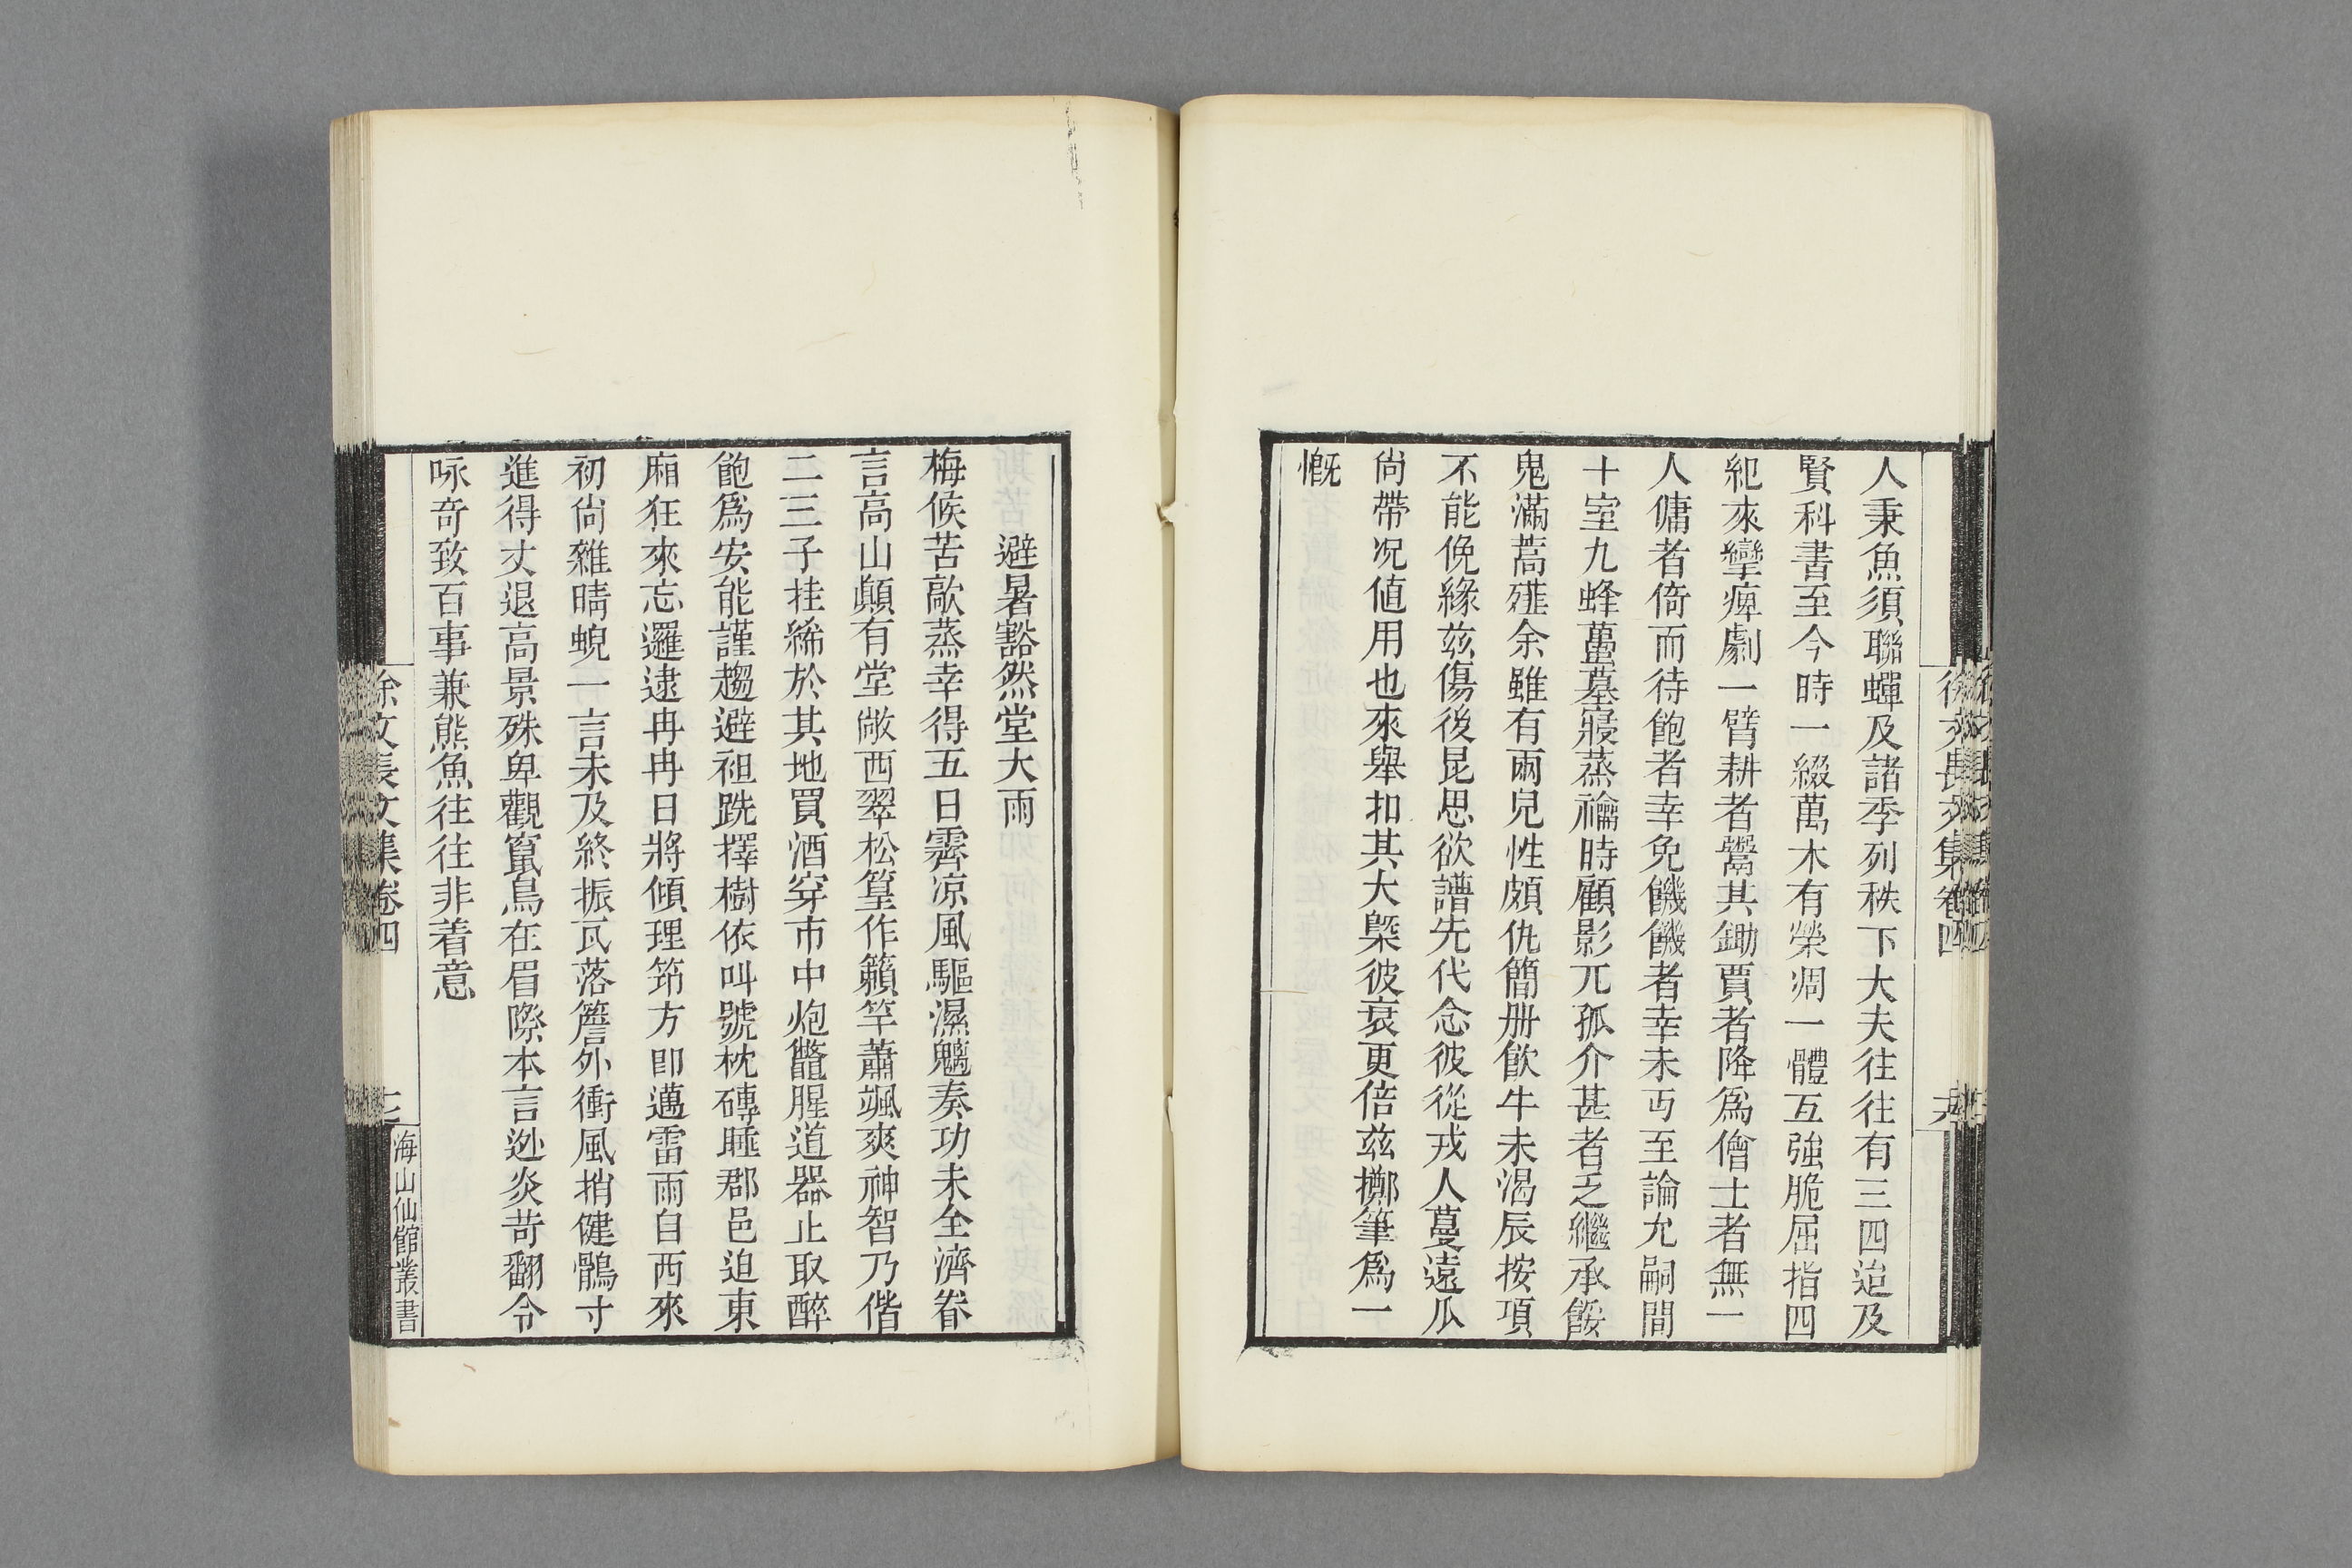 人秉魚須聯蟬及諸季列秩下大夫往往有三四迨及
賢科書至今時一綴萬木有榮凋一體互強脆屈指四
紀來攣痺劇一臂耕者鬻其鋤賈者降爲儈士者無一
人傭者倚而待飽者幸免饑饑者幸未丐至論允嗣間
十室九蜂蠆墓寢蒸禴時顧影兀孤介甚者乏繼承餒
鬼滿蒿薤余雖有兩兒性頗仇簡冊飲牛未渴辰按項
不能俛緣茲傷後昆思欲譜先代念彼從戎人蔓遠瓜
尙帶况値用也來舉扣其大槩彼衰更倍茲擲筆爲一
慨
徐文長文集卷四
六
避暑豁然堂大雨
梅候苦歊蒸幸得五日霽凉風驅濕魑奏功未全濟眷
言高山顚有堂敞西翠松篁作籟竽蕭颯爽神智乃偕
二三子挂絺於其地買酒穿市中炮鼈腥道器止取醉
飽爲安能謹趨避袒跣擇樹依叫號枕磚睡郡邑迫東
廂狂來忘邏逮冉冉日將傾理筇方卽邁雷雨自西來
初尙雜晴蜺一言未及終振瓦落簷外衝風捎健鶻寸
進得丈退高景殊卑觀竄鳥在眉際本言迯炎苛翻令
咏奇致百事兼熊魚往往非着意
徐文長文集卷四
海山仙館叢書